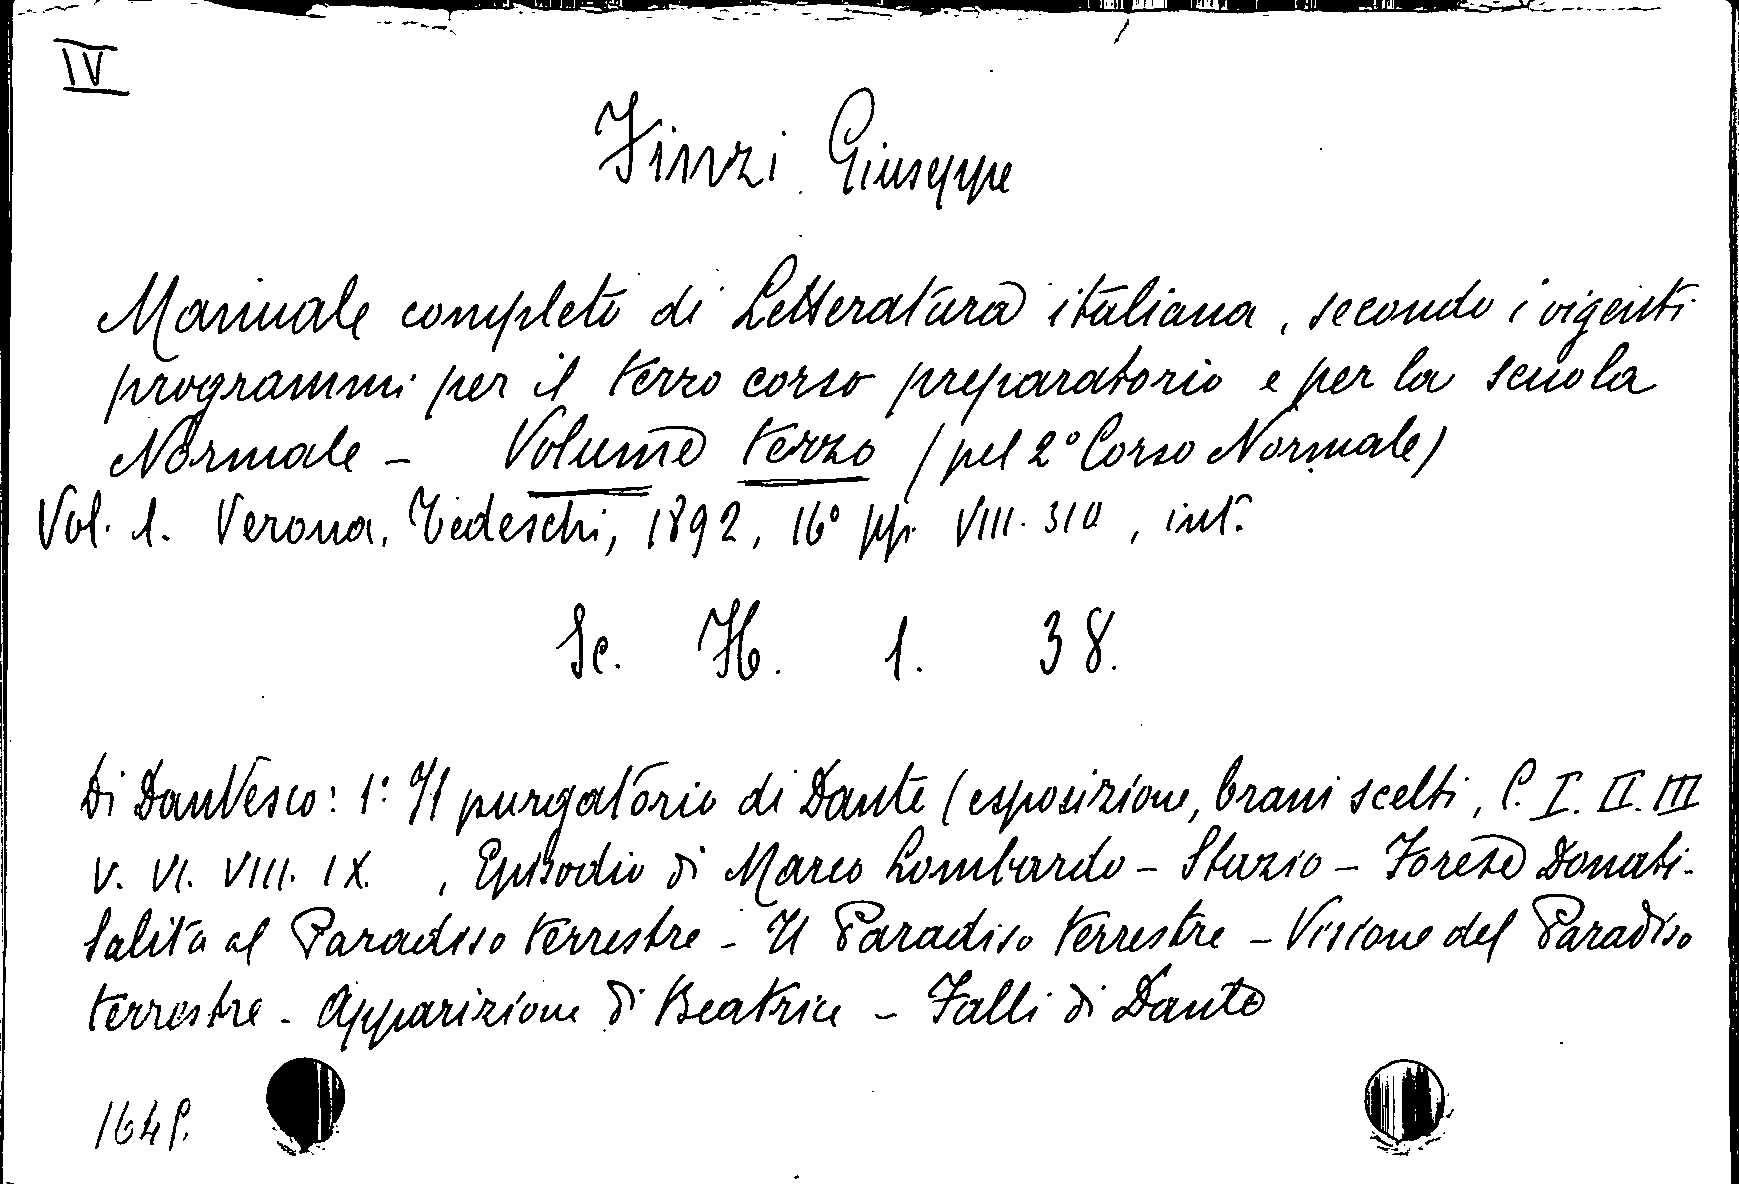 IV
Finzi Giuseppe
Manuale completo di Letteratura italiana, secondo i vigenti
programmi per il terzo corso preparatorio e per la scuola
Normale - Volume terzo (pel 2° Corso Normale)
Vol. 1. Verona, Tedeschi, 1892, 16° pp. VIII. 310, int.
Sc. H. 1. 38.
Di Dantesco: 1°. Il purgatorio di Dante (esposizione, brani scelti, C. I. II. III
V. VI. VIII. IX. , Episodio di Marco Lombardo - Stazio - Forese Donati -
Salita al Paradiso terrestre - Il Paradiso terrestre - Visione del Paradiso
terrestre - Apparizione di Beatrice - Falli di Dante